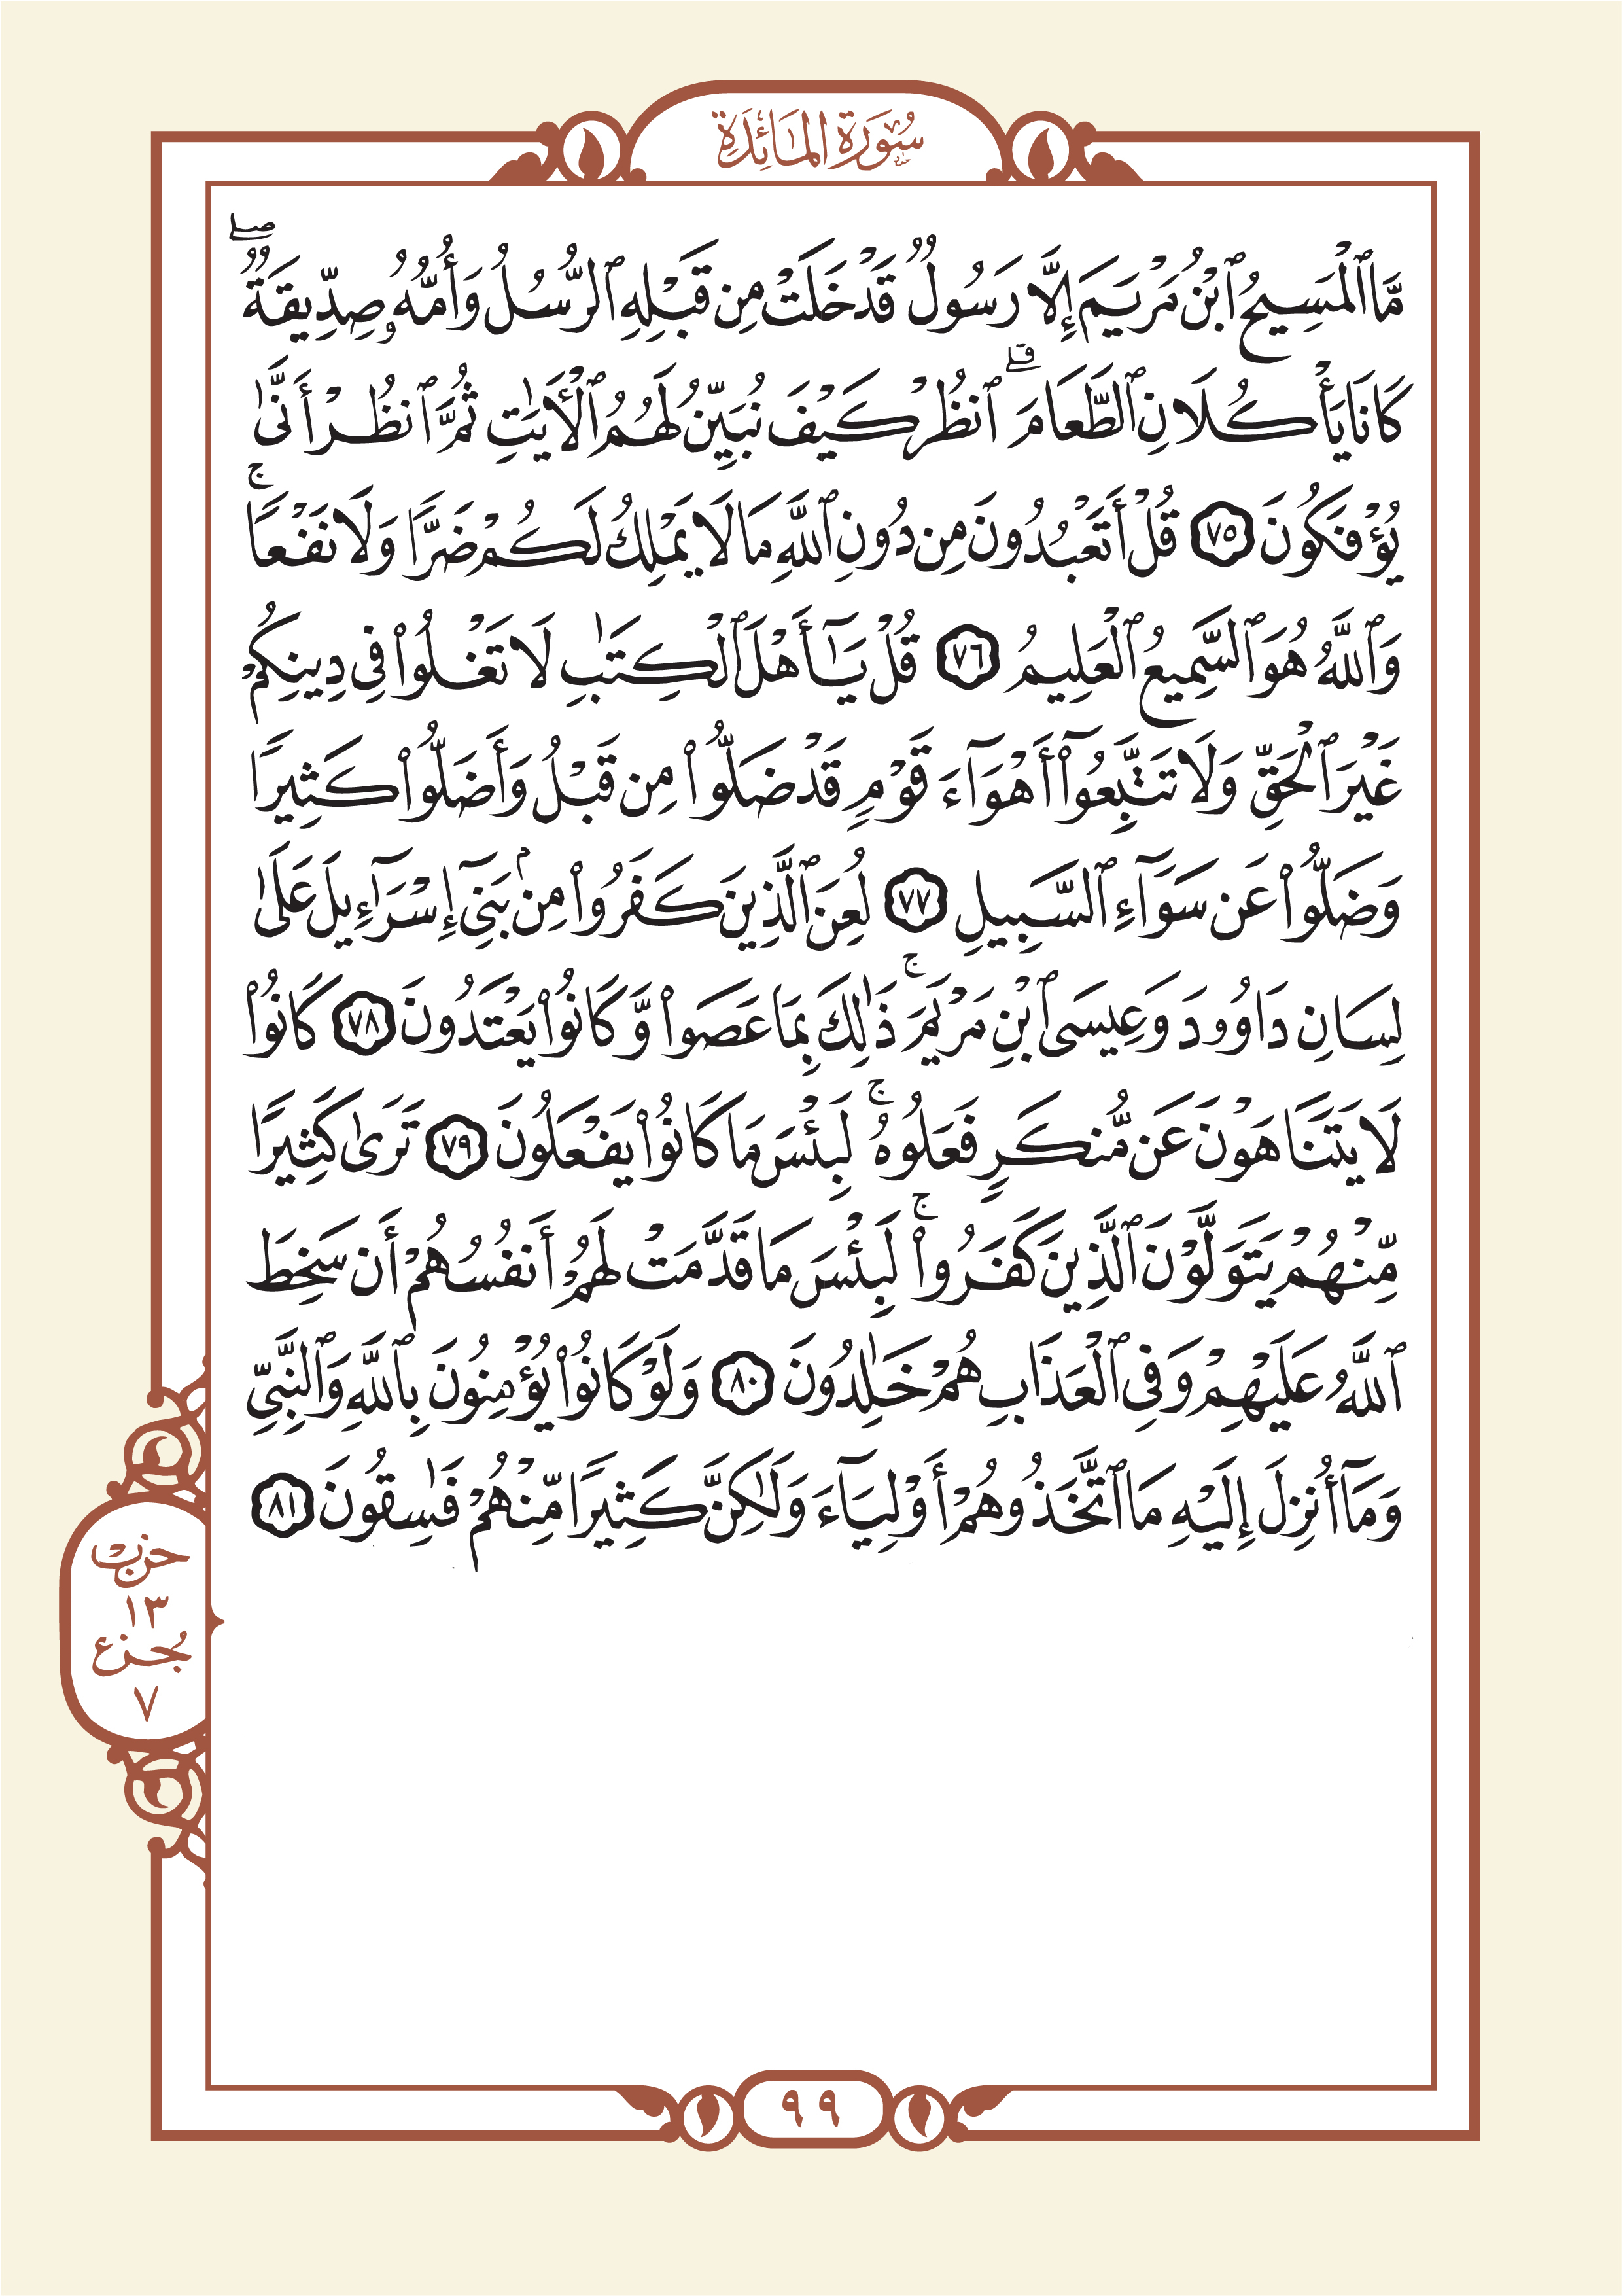 سُورَةُ المَائِدَةِ
مَّا ٱلْمَسِيحُ ٱبْنُ مَرْيَمَ إِلَّا رَسُولٌ قَدْ خَلَتْ مِن قَبْلِهِ ٱلرُّسُلُ وَأُمُّهُۥ صِدِّيقَةٌ ۖ
كَانَا يَأْكُلَانِ ٱلطَّعَامَ ۗ ٱنظُرْ كَيْفَ نُبَيِّنُ لَهُمُ ٱلْأٓيَٰتِ ثُمَّ ٱنظُرْ أَنَّىٰ
يُؤْفَكُونَ ٧٥ قُلْ أَتَعْبُدُونَ مِن دُونِ ٱللَّهِ مَا لَا يَمْلِكُ لَكُمْ ضَرًّا وَلَا نَفْعًا ۚ
وَٱللَّهُ هُوَ ٱلسَّمِيعُ ٱلْعَلِيمُ ٧٦ قُلْ يَٰٓأَهْلَ ٱلْكِتَٰبِ لَا تَغْلُوا۟ فِى دِينِكُمْ
غَيْرَ ٱلْحَقِّ وَلَا تَتَّبِعُوٓا۟ أَهْوَآءَ قَوْمٍ قَدْ ضَلُّوا۟ مِن قَبْلُ وَأَضَلُّوا۟ كَثِيرًا
وَضَلُّوا۟ عَن سَوَآءِ ٱلسَّبِيلِ ٧٧ لُعِنَ ٱلَّذِينَ كَفَرُوا۟ مِنۢ بَنِىٓ إِسْرَٰٓءِيلَ عَلَىٰ
لِسَانِ دَاوُۥدَ وَعِيسَى ٱبْنِ مَرْيَمَ ۚ ذَٰلِكَ بِمَا عَصَوا۟ وَّكَانُوا۟ يَعْتَدُونَ ٧٨ كَانُوا۟
لَا يَتَنَاهَوْنَ عَن مُّنكَرٍ فَعَلُوهُ ۚ لَبِئْسَ مَا كَانُوا۟ يَفْعَلُونَ ٧٩ تَرَىٰ كَثِيرًا
مِّنْهُمْ يَتَوَلَّوْنَ ٱلَّذِينَ كَفَرُوا۟ ۚ لَبِئْسَ مَا قَدَّمَتْ لَهُمْ أَنفُسُهُمْ أَن سَخِطَ
ٱللَّهُ عَلَيْهِمْ وَفِى ٱلْعَذَابِ هُمْ خَٰلِدُونَ ٨٠ وَلَوْ كَانُوا۟ يُؤْمِنُونَ بِٱللَّهِ وَٱلنَّبِىِّ
وَمَآ أُنزِلَ إِلَيْهِ مَا ٱتَّخَذُوهُمْ أَوْلِيَآءَ وَلَٰكِنَّ كَثِيرًا مِّنْهُمْ فَٰسِقُونَ ٨١
حزب
١٣
جُزء
٧
٩٩